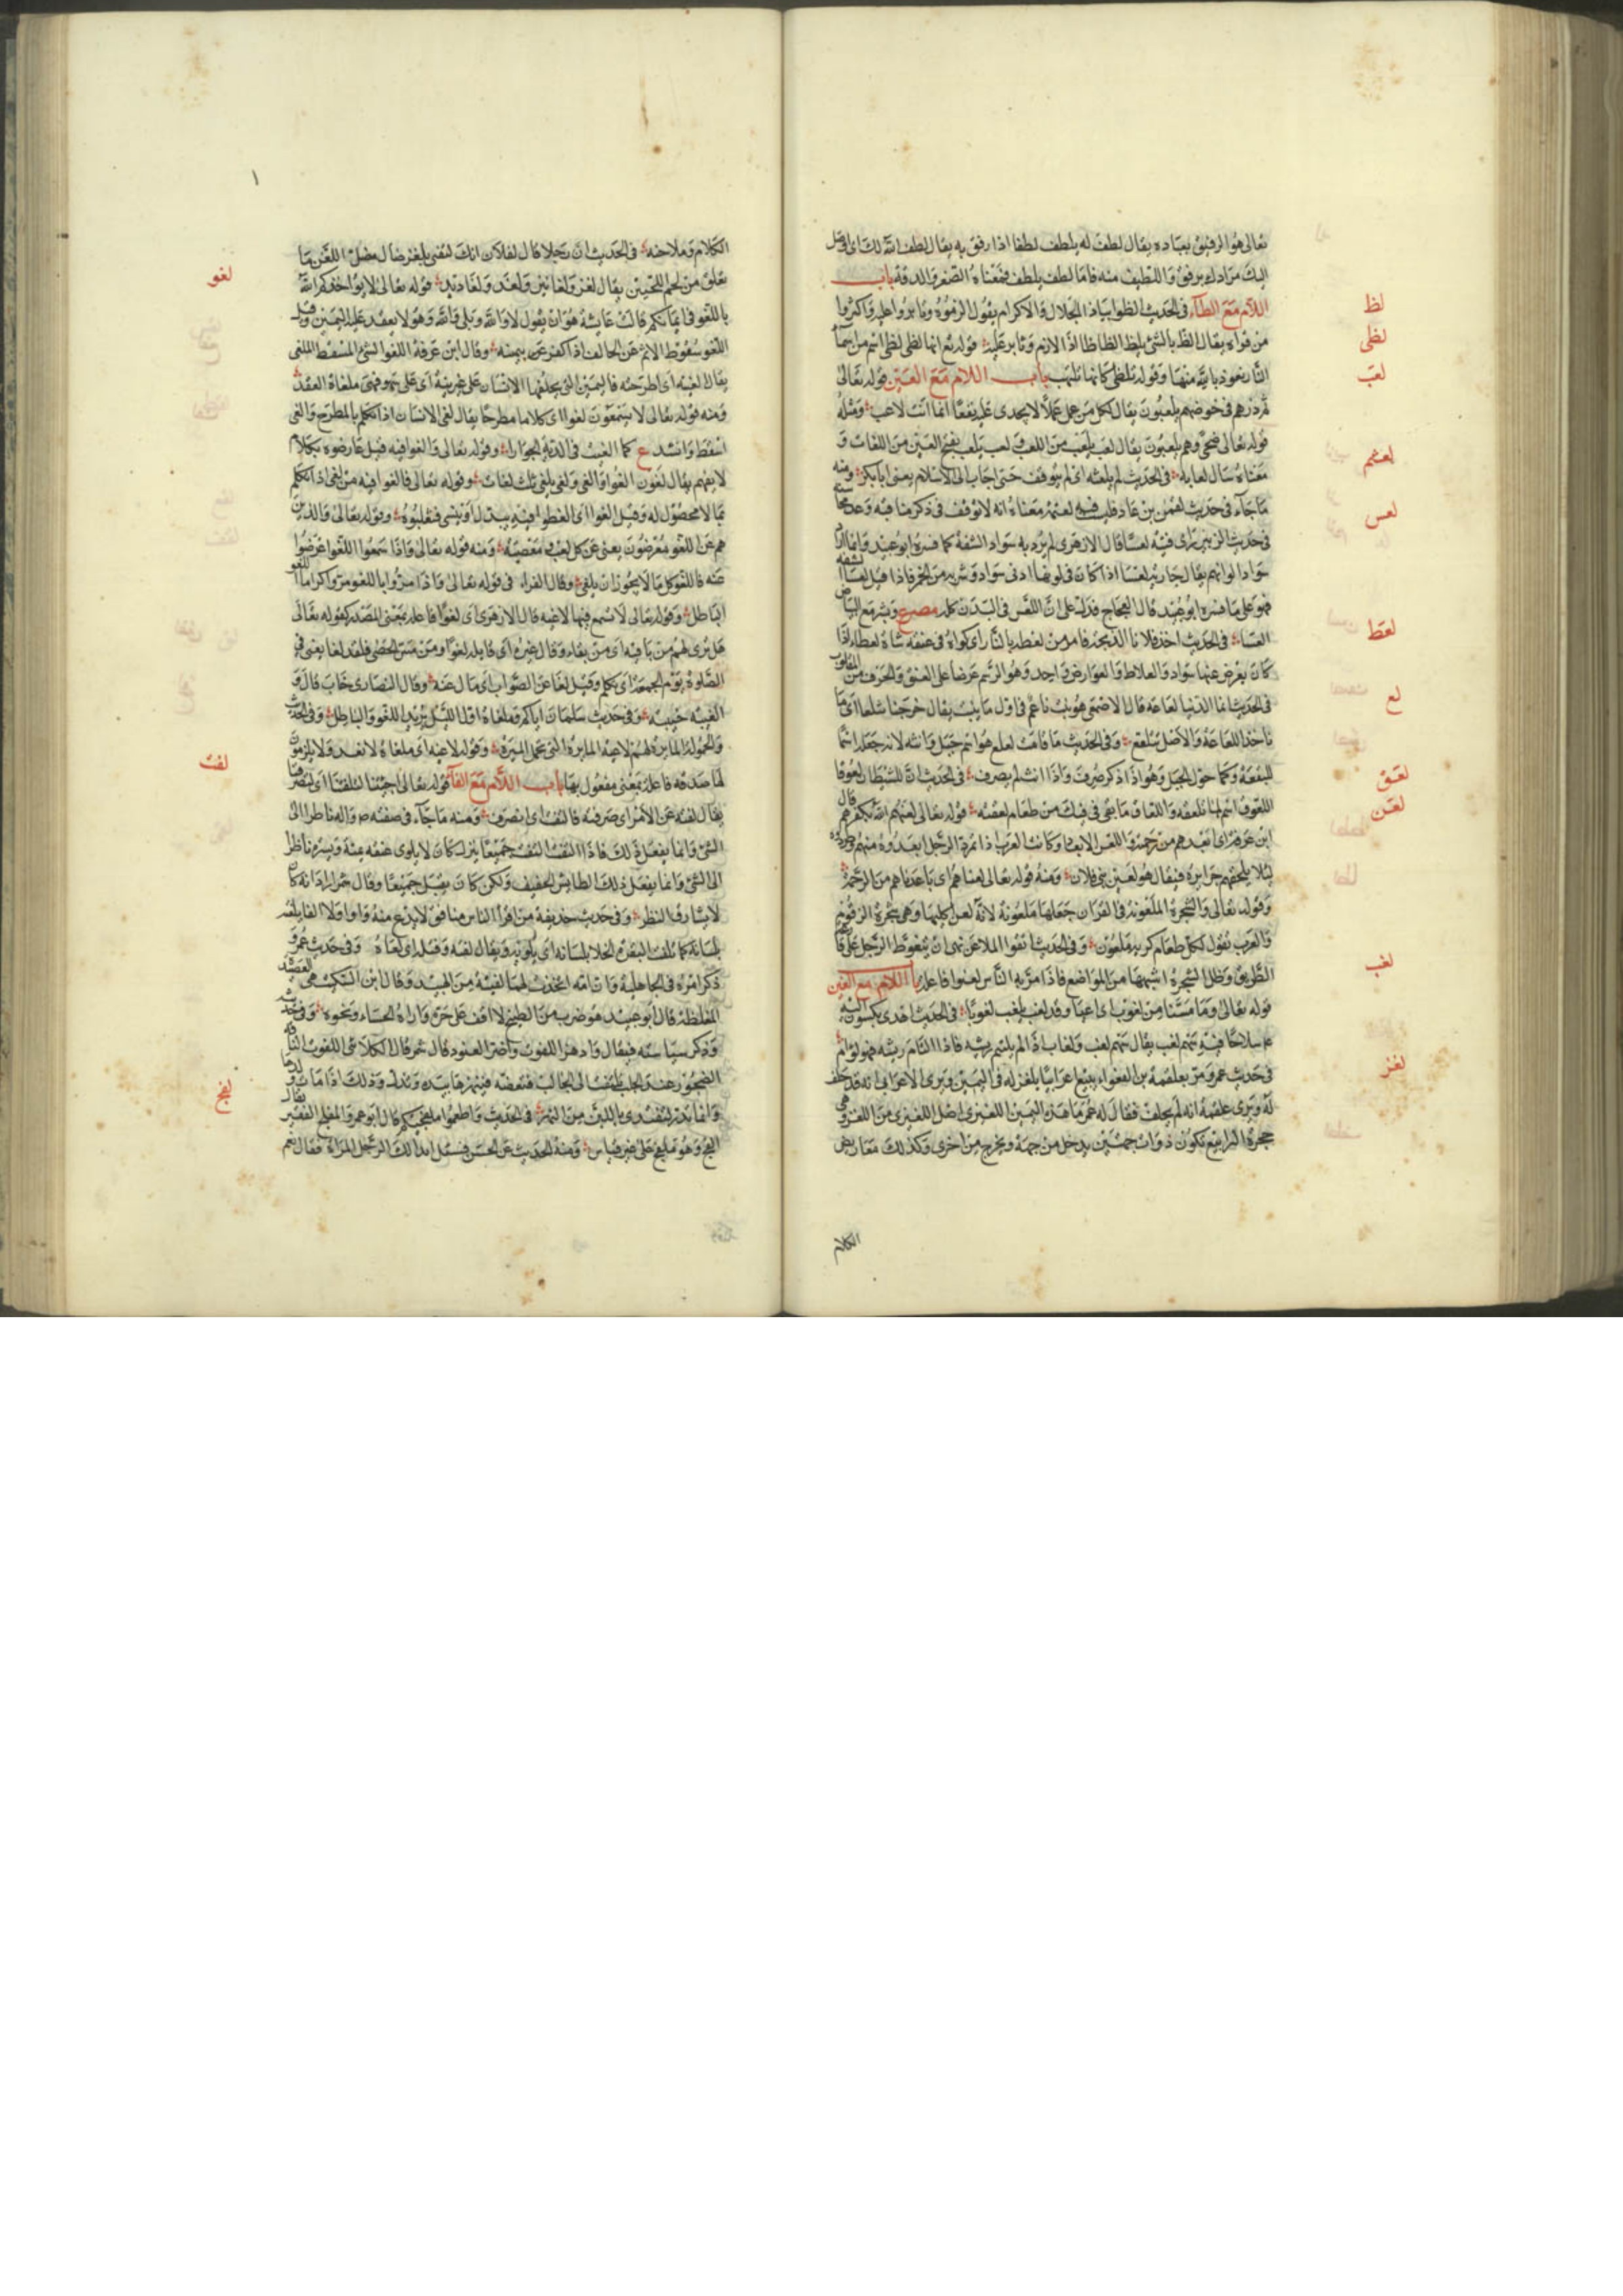 تعالى هو الرفيق بعباده يقال لطف له يلطف لطفا اذا رفق به يقال لطف الله لك اى اوصل
اليك مرادك برفق واللطيف منه فاما لطف يلطف فمعناه الصغر والدقة باب
اللام مع الظاء فى الحديث الظوا بياذا الجلال والاكرام يقول الزموه وثابروا عليه واكثروا
من قوله يقال الظ بالشئ يلظ الظاظا اذا لازم وثابر عليه قوله تع انها لظى لظى اسم من اسماء
النار نعوذ بالله منها وقوله تلظى كانها تلهب باب اللام مع العين قوله تعالى
ثم ذرهم فى خوضهم يلعبون يقال لكل من عمل عملا لا يجدى عليه نفعا انما انت لاعب ومثله
قوله تعالى ضحى وهم يلعبون يقال لعب يلعب من اللعب ولعب يلعب بفتح العين من اللغات و
معناه سال لعابه فى الحديث لم يلعثم اى لم يتوقف حتى اجاب الى الاسلام يعنى ابا بكر ومنه
ما جاء فى حديث لقمن بن عاد فليس فيه لعثمة معناه انه لا توقف فى ذكر مناقبه
فى حديث الزبير راى فتية لعسا قال الازهرى لم يرد به سواد الشفة كما فسره ابو عبيد وانما اراد
سواد الوانهم يقال جارية لعساء اذا كان فى لونها ادنى سواد وشربه من الحمرة فاذا قيل لعساء الشفة
فهو على ما فسره ابو عبيد قال العجاج فدل على ان اللعس فى البدن كله مصرع وبشر مع البياض
العسا فى الحديث
كان بعرض عنقها سواد والعلاط والعوارض واحد وهو الرسم عرضا على العنق
فى الحديث انما الدنيا لعاعة قال الاصمعى هو نبت ناعم فى اول ما ينبت يقال خرجنا نتلعى اى
ناخذ اللعاعة والاصل نتلعع وفى الحديث ما قامت لعلع هو اسم جبل وانثه لانه جعله اسما
للبقعة وكما حول الجبل وهو اذا ذكر صرف واذا انث لم يصرف فى الحديث ان للشيطان لعوقا
اللعوق اسم لما تلعقه واللعاق ما بقى فى فيك من طعام لعقته قوله تعالى لعنهم الله بكفرهم قال
ابن عرفة اى ابعدهم من رحمته واللعن الابعاد وكانت العرب اذا تمرد الرجل ابعدوه منهم وطردوه
لئلا يلحقهم جرايره فيقال هو لعين بنى فلان ومنه قوله تعالى لعناهم اى باعدناهم من الرحمة
وقوله تعالى والشجرة الملعونة فى القران جعلها ملعونة لانه لعن اكليها وهى شجرة الزقوم
والعرب تقول لكل طعام كريه ملعون وفى الحديث اتقوا الملاعن نهى ان يتغوط الرجل على قارعة
الطريق وظل الشجرة اشبهها من المواضع فاذا مر به الناس لعنوا فاعله باب اللام مع الغين
قوله تعالى وما مسنا من لغوب اى اعيا وقد لغب يلغب لغوبا فى الحديث اهدى يكسوم اليه
ع سلاحا فيه سهم لغب يقال سهم لغب ولغاب اذا لم يلتئم ريشه فاذا التام ريشه فهو لوام
فى حديث عمر ومر بعلقمة بن الفغواء يبايع اعرابيا يلغز له فى اليمين ويرى الاعرابى انه قد حلف
له ويرى علقمة انه لم يحلف فقال له عمر ما هذه اليمين اللغيزى اصل اللغيزى من اللغز وهى
جحرة اليرابيع تكون ذوات جهتين يدخل من جهة ويخرج من اخرى وكذلك معاريض
الكلام
لظ
لظى
لعب
لعثم
لعس
لعط
لع
لعق
لعن
لغب
لغز
الكلام وملاحنه فى الحديث ان رجلا قال لفلان انك لتفتى بلغن ضال مضل اللغن ما
تعلق من لحم اللحيين يقال لغن ولغانين ولغد ولغاديد قوله تعالى لا يؤاخذكم الله
باللغو فى ايمانكم قالت عايشة هو ان يقول لا والله وبلى والله وهو لا يعقد عليه اليمين وقيل
اللغو سقوط الاثم عن الحالف اذا كفر عن يمينه وقال ابن عرفة اللغو الشئ المسقط الملغى
يقال الغيته اى اطرحته فاليمين التى يحلفها الانسان على غير نية
ومنه قوله تعالى لا يسمعون لغوا اى كلاما مطرحا يقال لغى الانسان اذا تكلم بالمطرح والغى
اسقط وانشد ع كما الغيت فى الدية الحوارا وقوله تعالى والغوا فيه قيل عارضوه بكلام
لا يفهم يقال لغوت الغو والغى ولغى يلغى ثلث لغات وقوله تعالى والغوا فيه من لغى اذا تكلم
بما لا محصول له وقيل الغوا اى الغطوا فيه يبدل او ينسى فتغلبوه وقوله تعالى والذين
هم عن اللغو معرضون يعنى عن كل لعب ومعصية ومنه قوله تعالى واذا سمعوا اللغو اعرضوا
عنه فاللغو كل ما لا يجوز ان يلغى وقال الفراء فى قوله تعالى واذا مروا باللغو مروا كراما اللغو
الباطل وقوله تعالى لا تسمع فيها لاغية قال الازهرى اى لغوا فاعله بمعنى المصدر كقوله تعالى
هل ترى لهم من باقية اى من بقاء وقال غيره اى قايله لغوا ومن مس الحصى فقد لغا يعنى فى
الصلوة يوم الجمعة اى تكلم وقيل لغا عن الصواب اى مال عنه وقال النضر اى خاب قال و
الغيته خيبته وفى حديث سلمان اياكم وملغاة اول الليل يريد اللغو والباطل وفى الحديث
والحمولة المايرة لهم لاغية المايرة التى تحمل الميرة وقوله لاغية اى ملغاة لا تعد ولا يلزمون
لها صدقة فاعلة بمعنى مفعول بها باب اللام مع الفاء قوله تعالى اجئتنا لتلفتنا اى لتصرفنا
يقال لفته عن الامر اى صرفته فالتفت اى انصرف ومنه ما جاء فى صفته ص واله ناظرا الى
الشئ وانما يفعل ذلك فاذا التفت التفت جميعا يريد كان لا يلوى عنقه يمنة ويسرة ناظرا
الى الشئ وانما يفعل ذلك الطايش الخفيف ولكن كان يقبل جميعا وقال شمر اراد انه كان
لا يسارق النظر وفى حديث حذيفة من اقرا الناس منافق لا يدع منه واوا ولا الفا يلفته
بلسانه كما تلفت البقرة الخلا بلسانها اى يلويه ويقال لفته وفتله اى لواه وفى حديث عمر و
ذكر امره فى الجاهلية وان امه اتخذت لهم لفيتة من الهبيد وقال ابن السكيت هى العصيدة
المغلظة قال ابو عبيد هو ضرب من الطبيخ لا اقف على حده واراه الحساء ونحوه وفى حديثه
وذكر سياسته فيقال وانهز اللفوت واضم العنود قال شمر قال الكلابى اللفوت الناقة
الضجور عند الحلب تلتفت الى الحالب فتعضه فينهزها بيده فتدر وذلك اذا مات ولدها
وانما تدر لتفتدى باللبن من النهز فى الحديث واطعموا ملفجيكم قال ابو عمرو الملفج الفقير يقال
الفج وهو ملفج على غير قياس ومنه الحديث عن الحسن فسئل ايدالك الرجل المراة فقال نعم
لغو
لفت
لفج
١